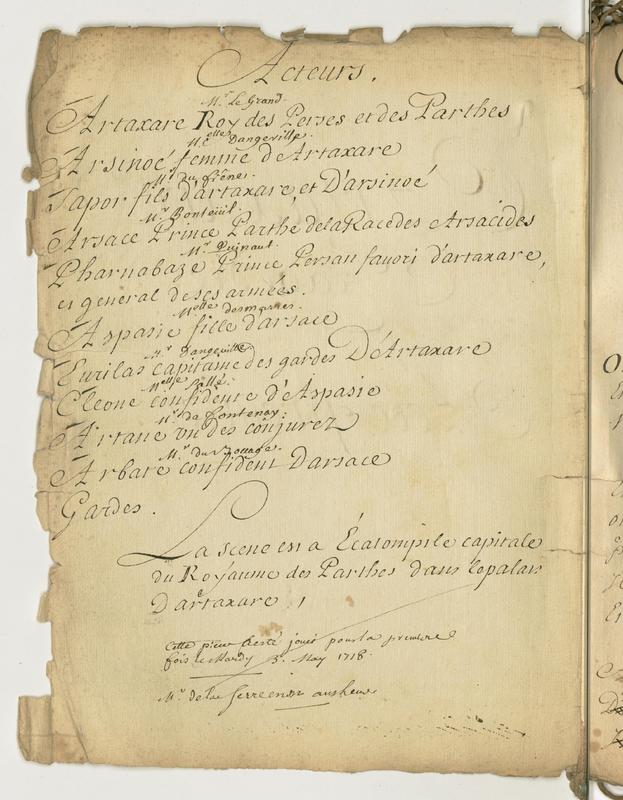 Acteurs.
Mr. le Grand.
Artaxare Roy des Perses et des Parthes
Melle Dangeville.
Arsinoé femme d'Artaxare
Mr. du frêne.
Sapor fils d'artaxare, et D'arsinoé
Mr. Ponteüil.
Arsace Prince Parthe dela Race des Arsacides
Mr. Quinaut.
Pharnabaze Prince Persan favori d'artaxare,
et general de ses armées.
Melle desmares.
Aspasie fille d'arsace
Mr. Dangeville
Eurilas capitaine des gardes D'Artaxare
Melle sallé.
Cleone confidente d'Aspasie
Mr. de Fontenay.
Artane un des conjurez
Mr. du
Arbate confident Darsace
Gardes.
La scene est a Écatompile capitale
du Royaume des Parthes dans le palais
D'artaxare,
Cette piece a esté jouée pour la premiere
fois le Mardy 3. May 1718.
Mr. de la Serre en est